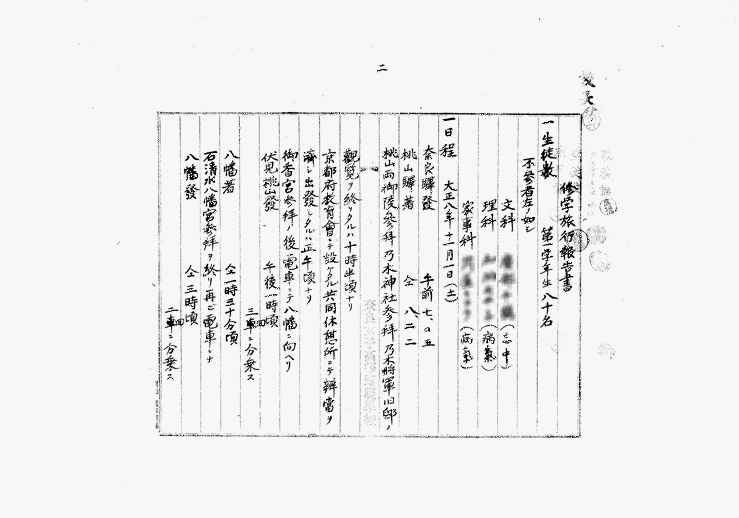 二
修学旅行報告書
一生徒数　第一学年生八十名
不参者左ノ如シ
文科　（忌中）
理科　（病氣）
家事科　（病氣）
一日程　大正八年十一月一日（土）
奈良驛發　午前七、〇五
桃山驛着　仝　八、二二
桃山両御陵参拜乃木神社参拜乃木将軍旧邸ノ
觀覧ヲ終リタルハ十時半頃ナリ
京都府教育會ニテ設ケタル共同休憩所ニテ辨當ヲ
濟シ出發シタルハ正午頃ナリ
御香宮参拜ノ後電車ニテ八幡ニ向ヘリ
伏見桃山發　午後一時頃
三車ニ分乗ス
八幡着　仝一時三十分頃
石清水八幡宮参拜ヲ終リ再ビ電車ニテ
八幡發　仝三時頃
二車ニ分乗ス